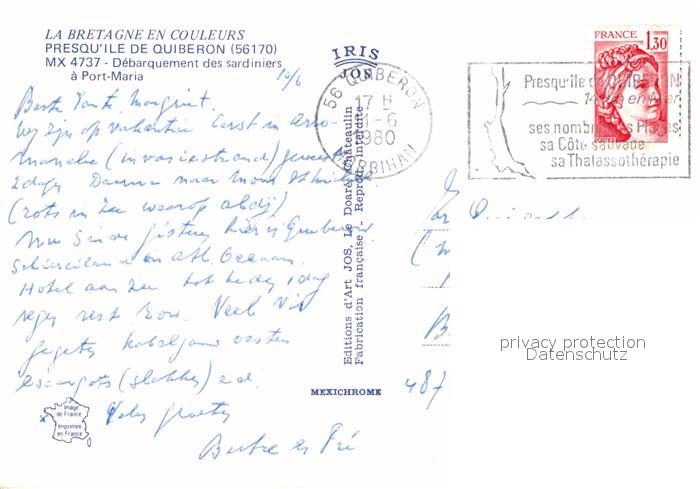 LA BRETAGNE EN COULEURS
PRESQU'ILE DE QUIBERON (56170)
MX 4737 - Débarquement des sardiniers
à Port-Maria
10/6
Beste Tante Margriet.
Wij zijn op vakantie eerst in Arro-
manche (invasiestrand) geweest
2 dagen Daarna naar Mont St Michel
(rots in zee waarop abdij)
Nu sinds gisteren hier in Quiberon
Schiereiland in Atl. Oceaan.
Hotel aan zee tot heden 1 dag
regen rest zon. Veel vis
gegeten kabeljauw oesters
escargots (slakken) e.d.
Vele groeten
IRIS
JOS
Editions d'Art JOS, Le Doaré, Châteaulin
Fabrication française - Reprod. interdite
MEXICHROME
Image
de France
Imprimée
en France
56 QUIBERON
17 H
11-6
1980
MORBIHAN
FRANCE
1,30
POSTES
Presqu'île de QUIBERON
14 en mer
ses nombreuses Plages
sa Côte sauvage
sa Thalassothérapie
487
privacy protection
Datenschutz